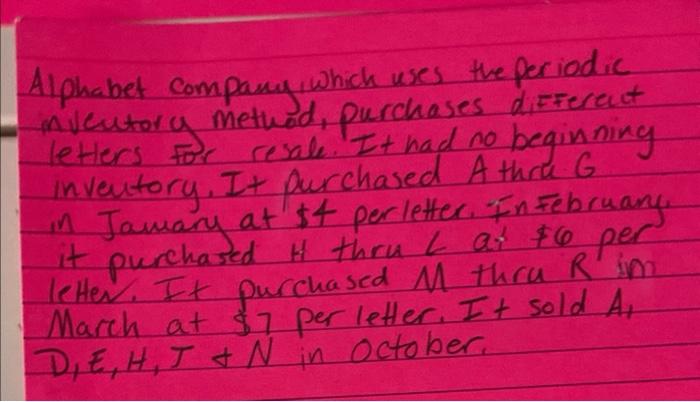 Alphabet Company, which uses the periodic
inventory method, purchases different
letters for resale. It had no beginning
inventory. It purchased A thru G
in January at $4 per letter. In February,
it purchased H thru L at $6 per
letter. It purchased M thru R in
March at $7 per letter. It sold A,
D, E, H, J & N in October.